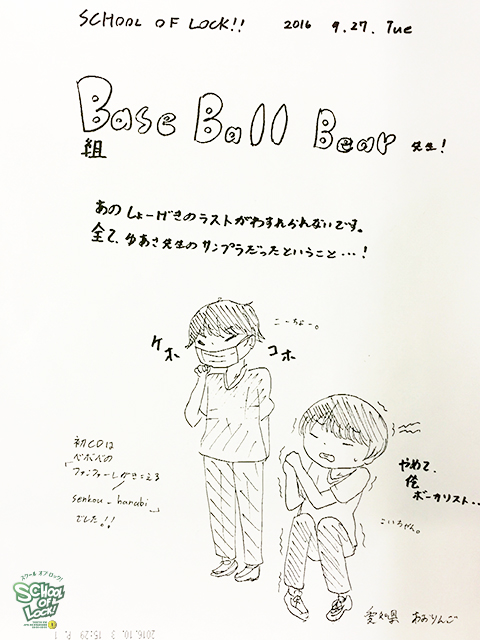 SCHOOL OF LOCK!! 2016 9.27. Tue
Base Ball Bear 先生!
組
あのしょーげきのラストがわすれられないです。
全て、ゆあさ先生のサンプラだったということ…!
こーちょー。
ケホ コホ
初CDは
ベボベの
「ファンファーレがきこえる
/
senkou_hanabi」
でした!!
やめて、
俺
ボーカリスト..
こいちゃん。
愛知県 あおりんご
スクール オブ ロック!
SCHOOL
OF
LOCK!
2016.10. 3 15:29 P. 1